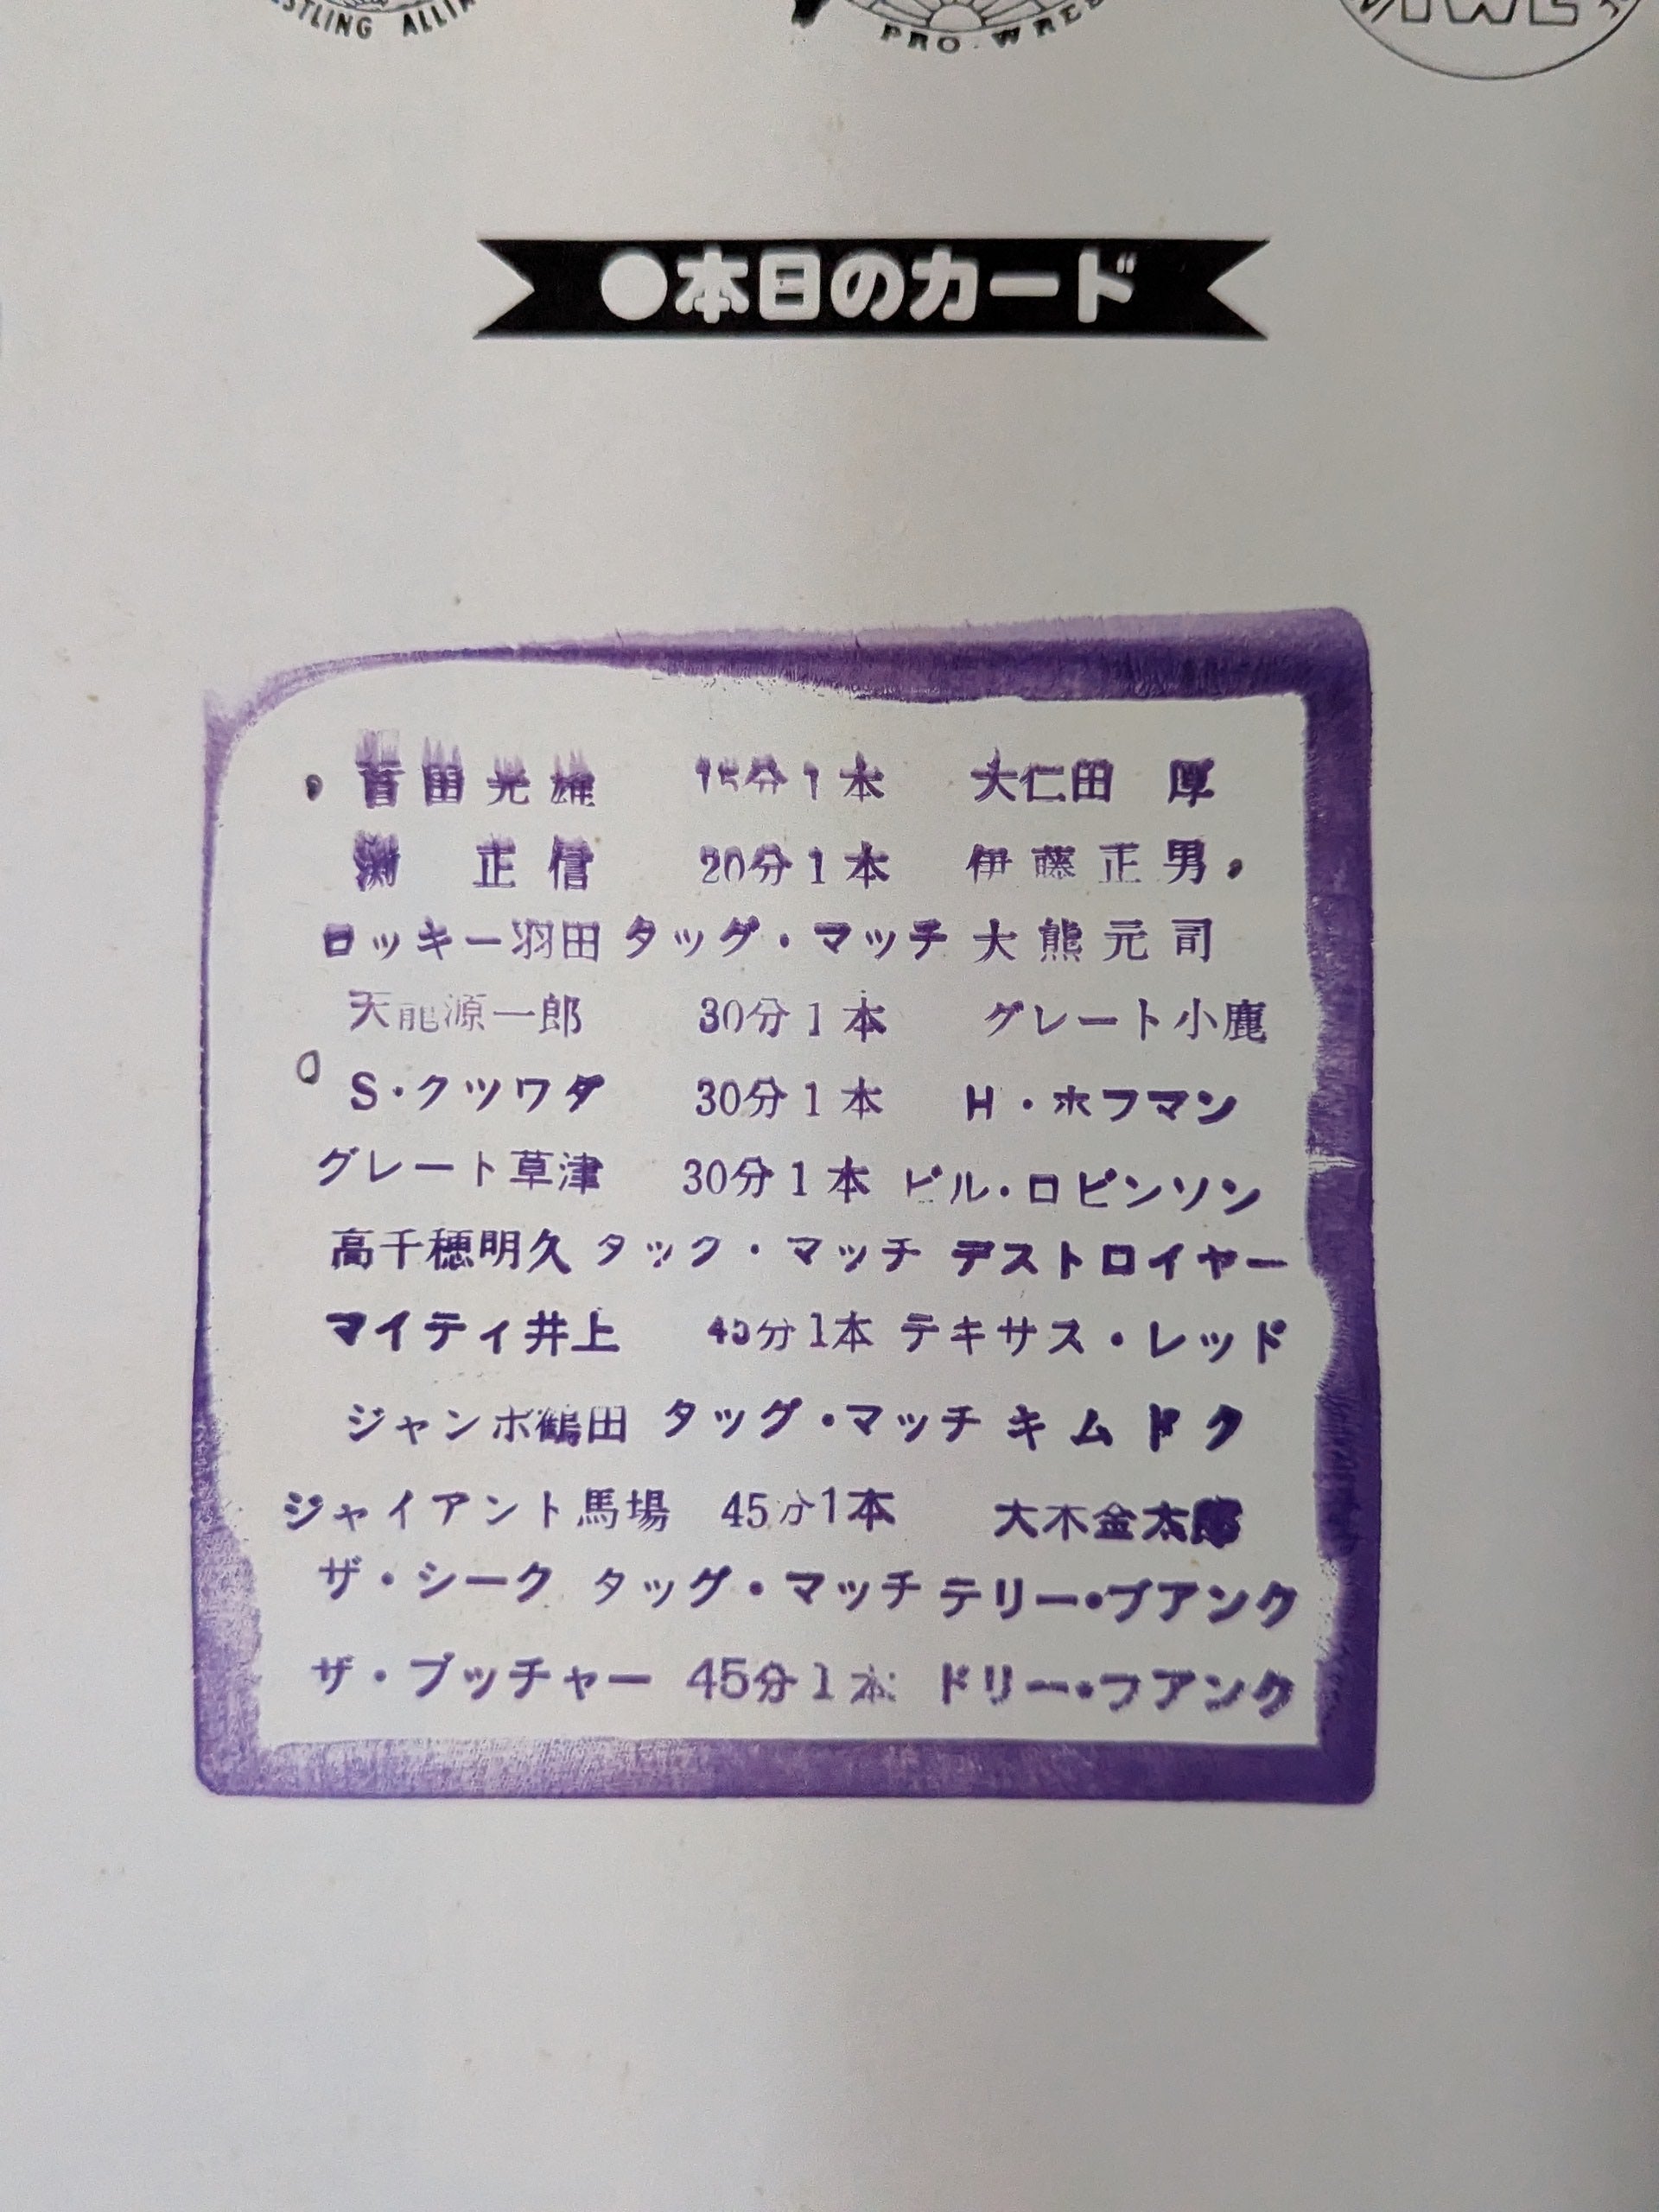 STLING ALLIA
PRO-WRES
IWE
●本日のカード
百田光雄 15分1本 大仁田 厚
渕 正信 20分1本 伊藤正男
ロッキー羽田 タッグ・マッチ 大熊元司
天龍源一郎 30分1本 グレート小鹿
S・クツワダ 30分1本 H・ホフマン
グレート草津 30分1本 ビル・ロビンソン
高千穂明久 タック・マッチ デストロイヤー
マイティ井上 45分1本 テキサス・レッド
ジャンボ鶴田 タッグ・マッチ キムドク
ジャイアント馬場 45分1本 大木金太郎
ザ・シーク タッグ・マッチ テリー・フアンク
ザ・ブッチャー 45分1本 ドリー・フアンク